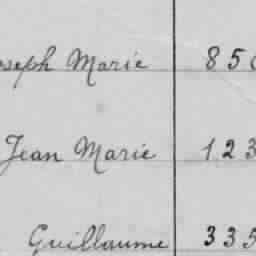 oseph Marie 850
Jean Marie 123
Guillaume 335